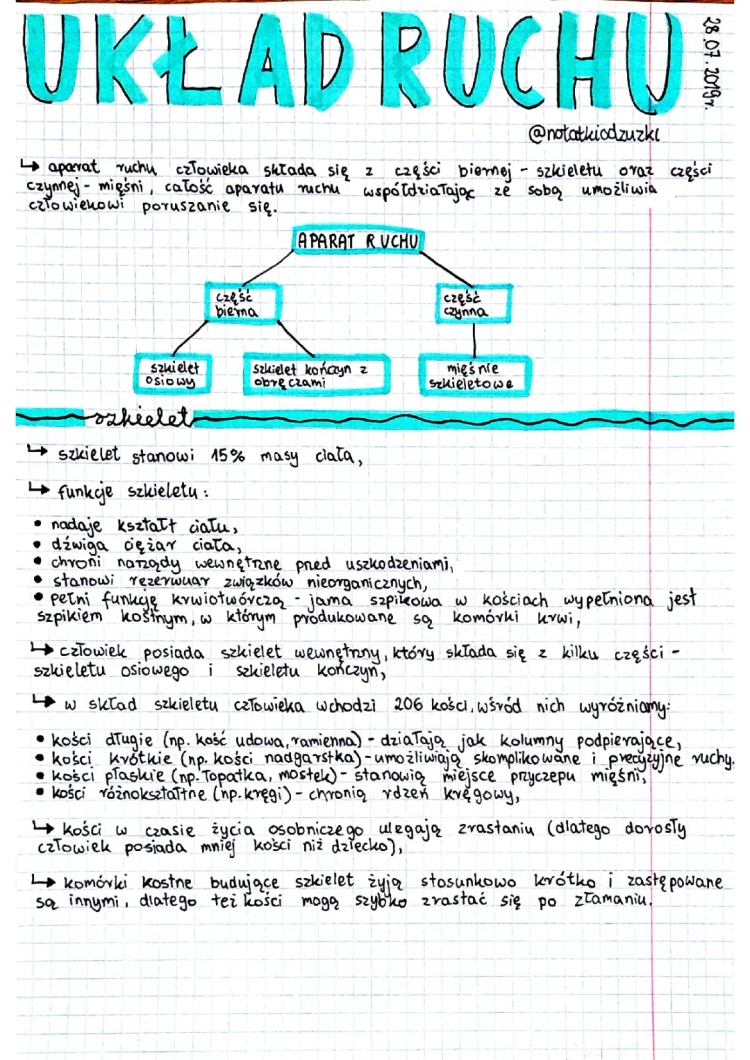 UKŁAD RUCHU
28.07.2019r.
@notatkiodzuzki
↳ aparat ruchu człowieka składa się z części biernej - szkieletu oraz części
czynnej - mięśni, całość aparatu ruchu współdziałając ze sobą umożliwia
człowiekowi poruszanie się.
APARAT RUCHU
część
bierna
część
czynna
szkielet
osiowy
szkielet kończyn z
obręczami
mięśnie
szkieletowe
szkielet
↳ szkielet stanowi 15% masy ciała,
↳ funkcje szkieletu:
• nadaje kształt ciału,
• dźwiga ciężar ciała,
• chroni narządy wewnętrzne przed uszkodzeniami,
• stanowi rezerwuar związków nieorganicznych,
• pełni funkcję krwiotwórczą - jama szpikowa w kościach wypełniona jest
szpikiem kostnym, w którym produkowane są komórki krwi,
↳ człowiek posiada szkielet wewnętrzny, który składa się z kilku części -
szkieletu osiowego i szkieletu kończyn,
↳ w skład szkieletu człowieka wchodzi 206 kości, wśród nich wyróżniamy:
• kości długie (np. kość udowa, ramienna) - działają jak kolumny podpierające,
• kości krótkie (np. kości nadgarstka) - umożliwiają skomplikowane i precyzyjne ruchy.
• kości płaskie (np. łopatka, mostek) - stanowią miejsce przyczepu mięśni,
• kości różnokształtne (np. kręgi) - chronią rdzeń kręgowy,
↳ kości w czasie życia osobniczego ulegają zrastaniu (dlatego dorosły
człowiek posiada mniej kości niż dziecko),
↳ komórki kostne budujące szkielet żyją stosunkowo krótko i zastępowane
są innymi, dlatego też kości mogą szybko zrastać się po złamaniu.